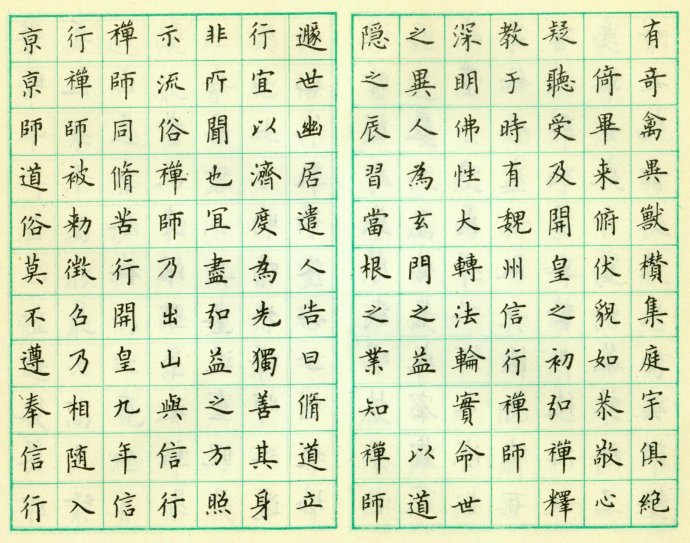 有奇禽異獸櫕集庭宇俱絶
倚畢来俯伏貌如恭敬心
疑聽受及開皇之初弘禪釋
教于時有魏州信行禪師
深明佛性大轉法輪實命世
之異人為玄門之益以道
隠之辰習當根之業知禪師
遯世幽居遣人告曰脩道立
行宜以濟度為先獨善其身
非所聞也冝盡弘益之方照
示流俗禪師乃出山與信行
禪師同脩苦行開皇九年信
行禪師被勅徵召乃相随入
京京師道俗莫不遵奉信行